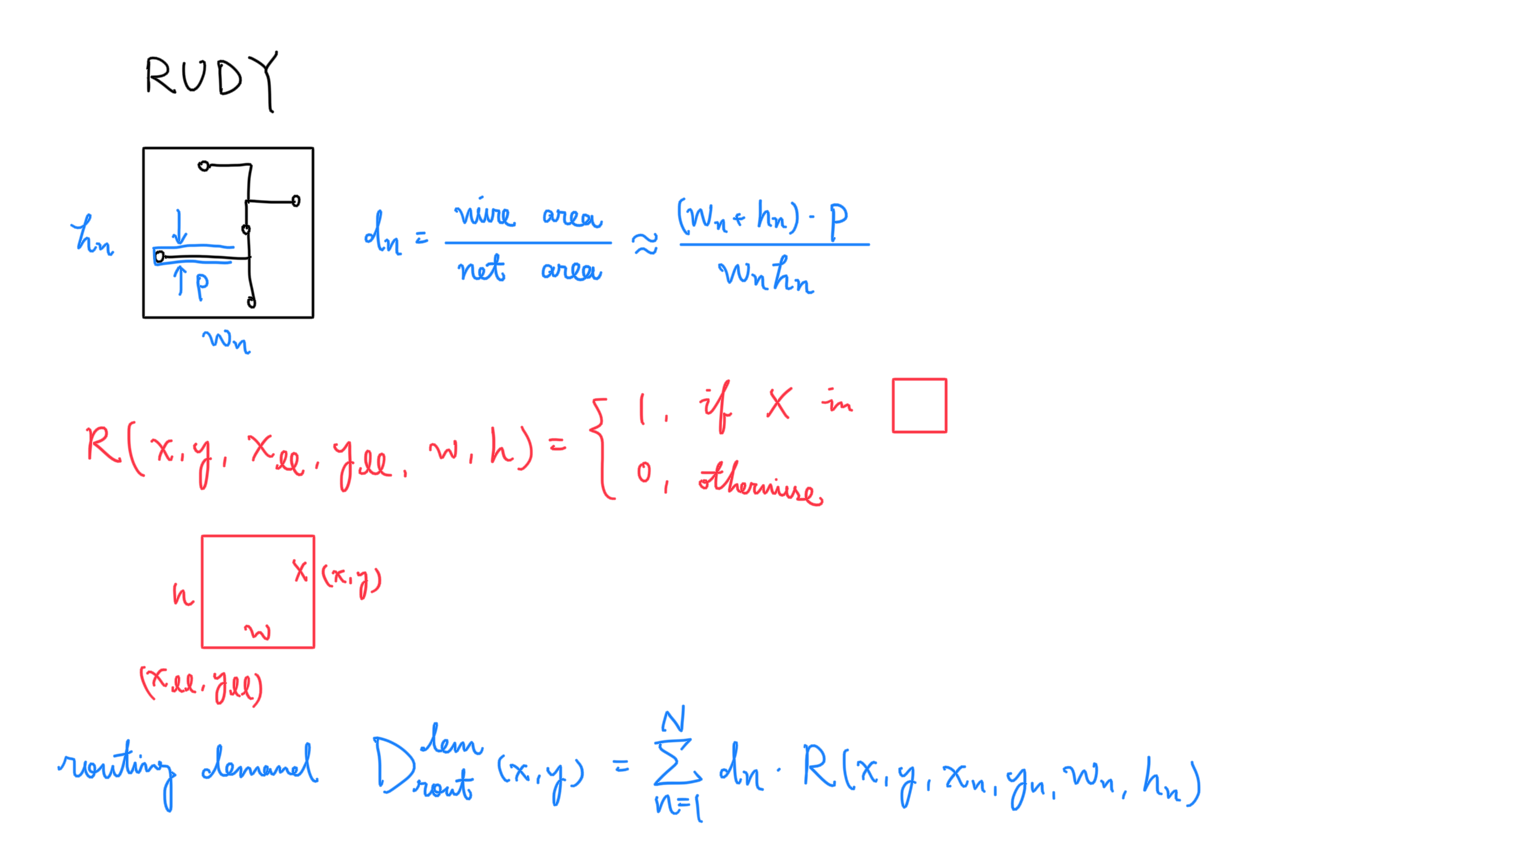 RUDY
hₙ
p
wₙ
dₙ = wire area / net area ≈ (wₙ + hₙ) · p / wₙhₙ
R(x, y, xₗₗ, yₗₗ, w, h) = { 1, if X in □
0, otherwise
h
w
X (x, y)
(xₗₗ, yₗₗ)
routing demand D_rout^dem (x, y) = ∑_{n=1}^{N} dₙ · R(x, y, xₙ, yₙ, wₙ, hₙ)